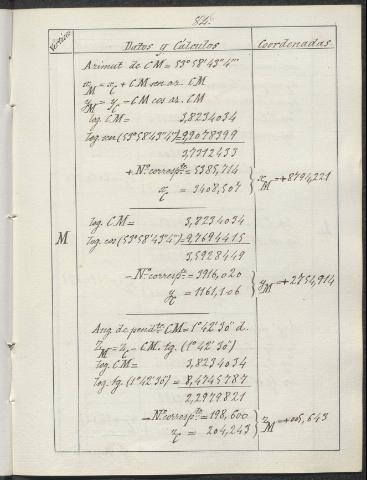 82.
Vértice Datos y Cálculos Coordenadas
Azimut de CM = 53°58'43"4'''
x_M = x_C + CM sen az. CM
y_M = y_C - CM cos az. CM
log. CM = 3,8234034
log. sen (53°58'43"4) = 9,9078399
3,7312433
+ N.º corresp.te = 5385,714
x_C = 3408,507 } x_M = +8794,221
log. CM = 3,8234034
M log. cos (53°58'43"4) = 9,7694415
3,5928449
- N.º corresp.te = 3916,020
y_C = 1161,106 } y_M = -2754,914
Ang. de pend.te CM = 1°42'30" d.
z_M = z_C - CM. tg. (1°42'30")
log. CM = 3,8234034
log. tg. (1°42'30") = 8,4745787
2,2979821
- N.º corresp.te = 198,600
z_C = 204,243 } z_M = +005,643